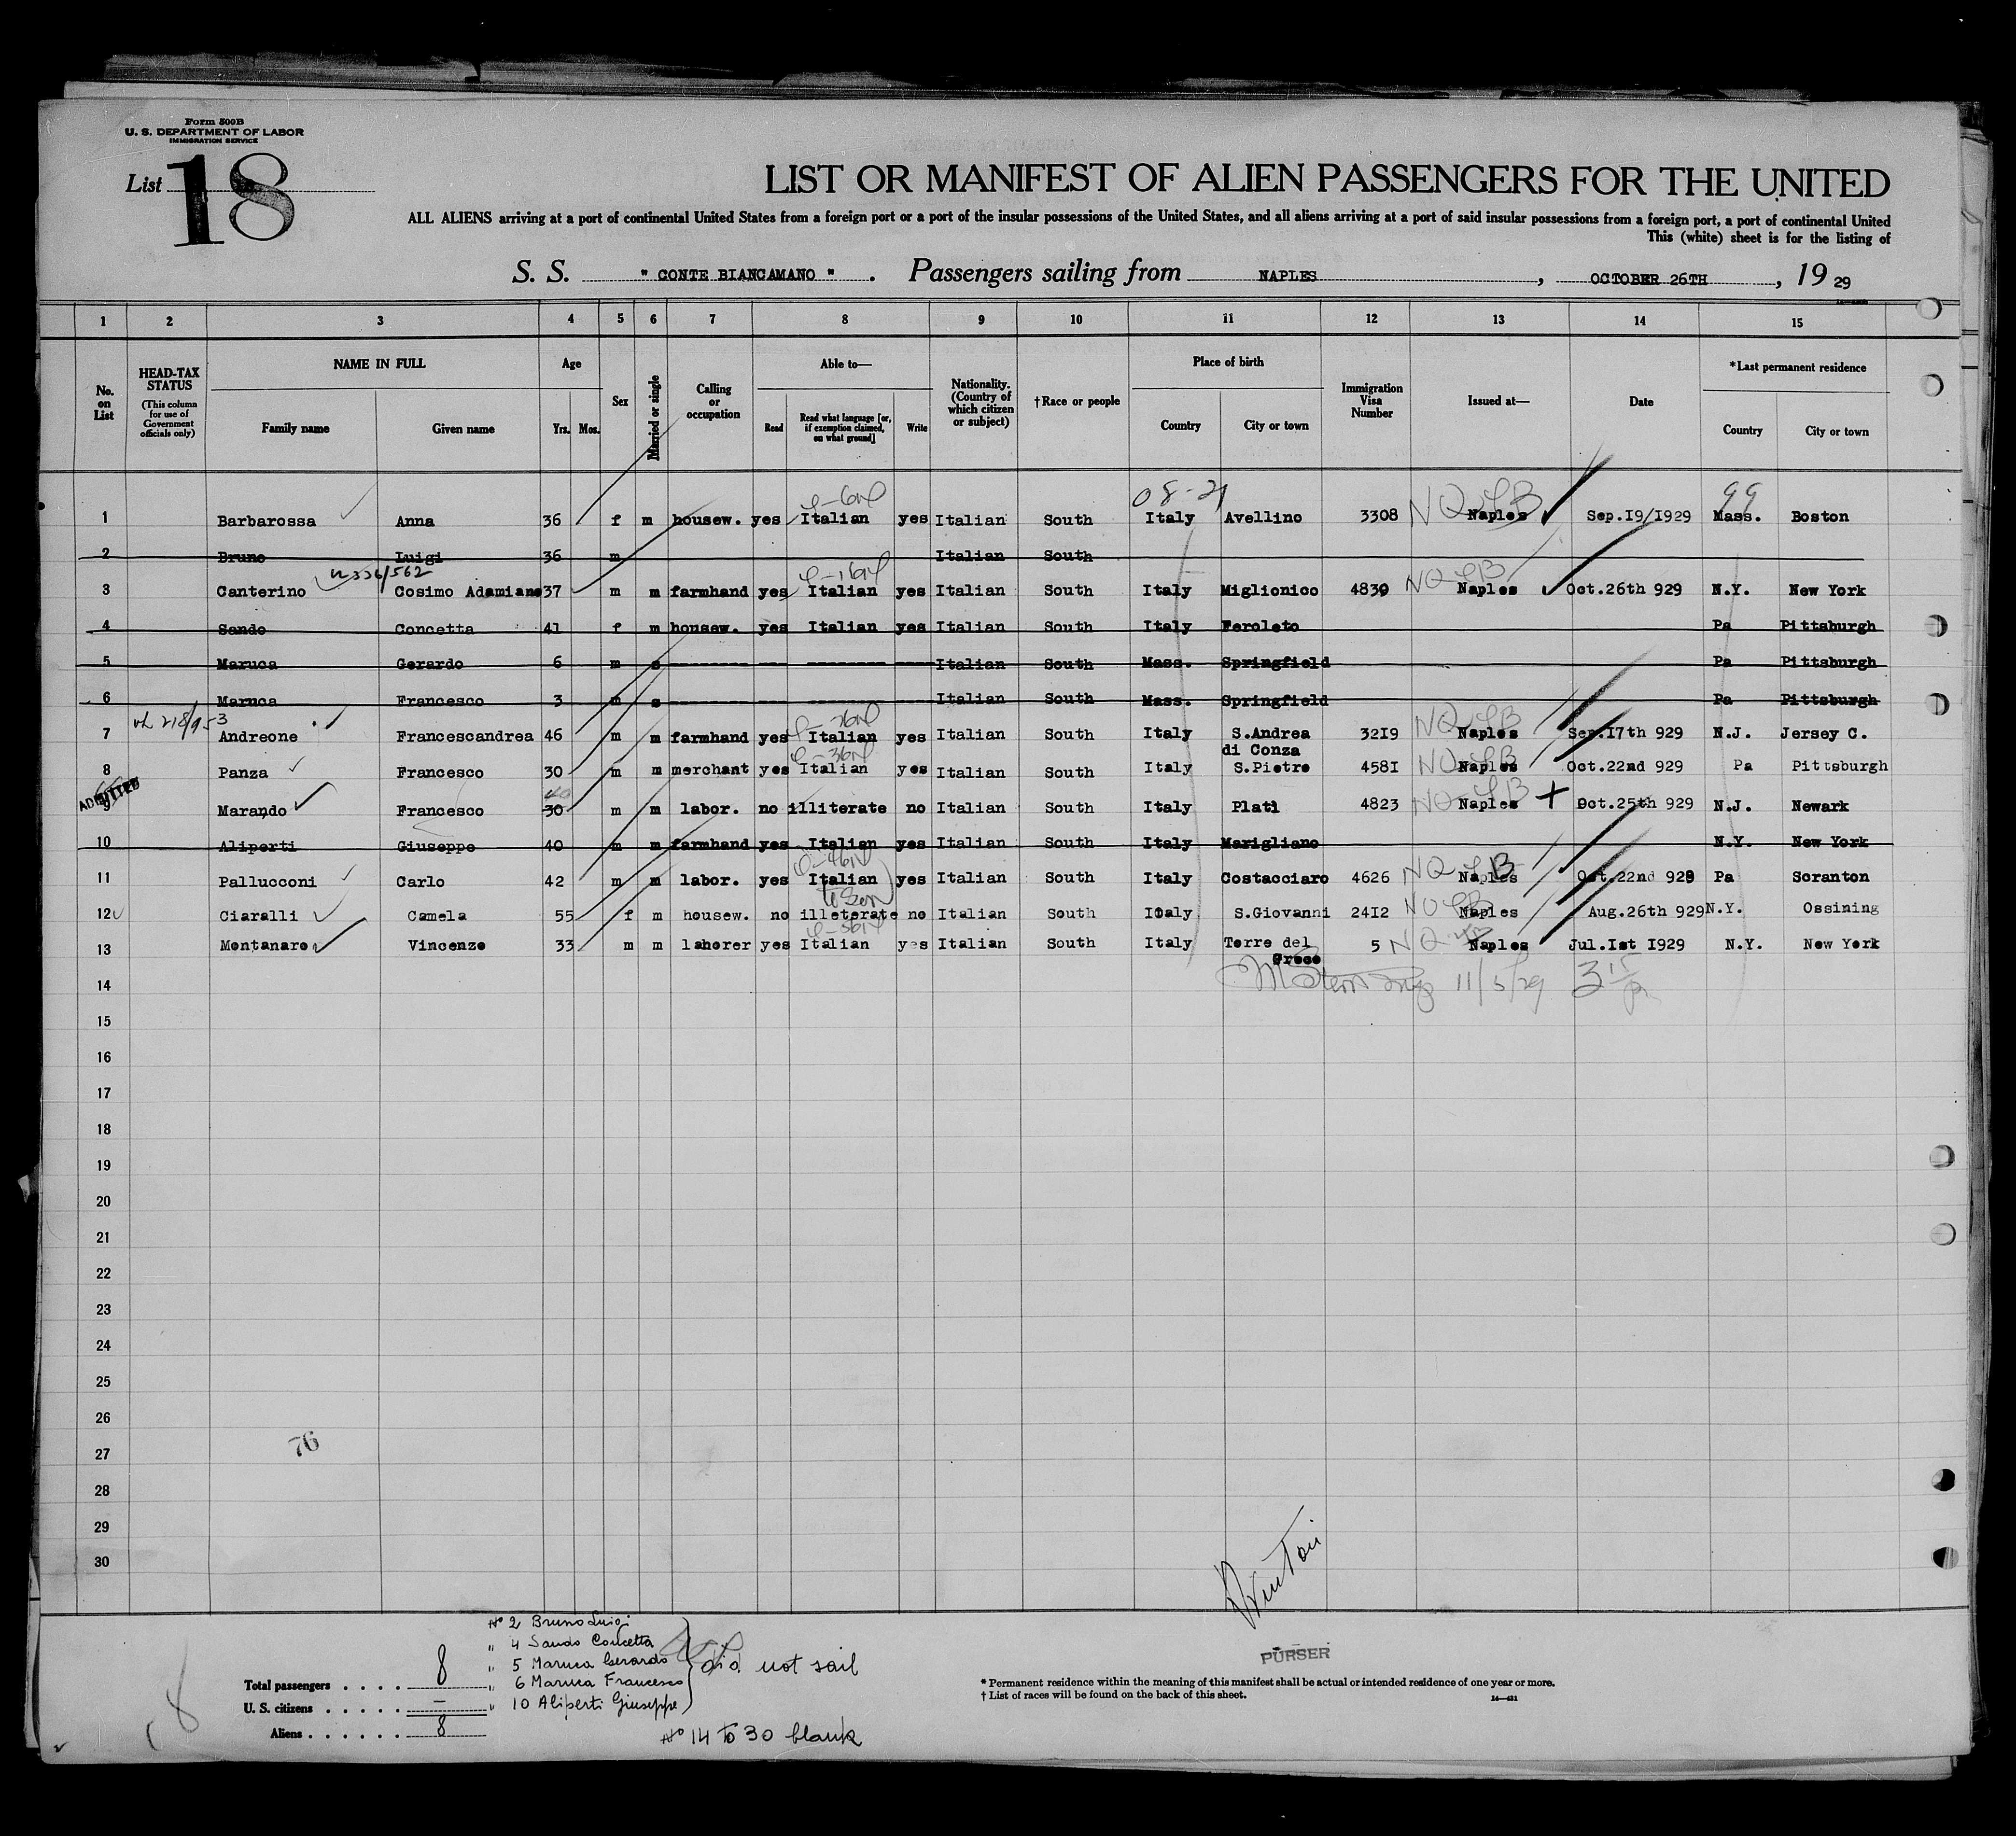 Form 500B
U. S. DEPARTMENT OF LABOR
IMMIGRATION SERVICE
List 18
LIST OR MANIFEST OF ALIEN PASSENGERS FOR THE UNITED
ALL ALIENS arriving at a port of continental United States from a foreign port or a port of the insular possessions of the United States, and all aliens arriving at a port of said insular possessions from a foreign port, a port of continental United
This (white) sheet is for the listing of
S. S. " CONTE BIANCAMANO " . Passengers sailing from NAPLES , OCTOBER 26TH , 19 29
1 2 3 4 5 6 7 8 9 10 11 12 13 14 15
No. on List HEAD-TAX STATUS (This column for use of Government officials only) NAME IN FULL Family name Given name Age Yrs. Mos. Sex Married or single Calling or occupation Able to— Read Read what language [or, if exemption claimed, on what ground] Write Nationality. (Country of which citizen or subject) †Race or people Place of birth Country City or town Immigration Visa Number Issued at— Date *Last permanent residence Country City or town
08-21 99
1 Barbarossa Anna 36 f m housew. yes Italian yes Italian South Italy Avellino 3308 Naples Sep.I9/I929 Mass. Boston
2 Bruno Luigi 36 m Italian South
3 Canterino Cosimo Adamiano 37 m m farmhand yes Italian yes Italian South Italy Miglionico 4839 Naples Oct.26th 929 N.Y. New York
4 Sando Concetta 41 f m housew. yes Italian yes Italian South Italy Feroleto Pa Pittsburgh
5 Maruca Gerardo 6 m s Italian South Mass. Springfield Pa Pittsburgh
6 Maruca Francesco 3 m s Italian South Mass. Springfield Pa Pittsburgh
7 Andreone Francescandrea 46 m m farmhand yes Italian yes Italian South Italy S.Andrea di Conza 32I9 Naples Sep.I7th 929 N.J. Jersey C.
8 Panza Francesco 30 m m merchant yes Italian yes Italian South Italy S.Pietro 458I Naples Oct.22nd 929 Pa Pittsburgh
ADMITTED
9 Marando Francesco 30 40 m m labor. no illiterate no Italian South Italy Platì 4823 Naples Oct.25th 929 N.J. Newark
10 Aliperti Giuseppe 40 m m farmhand yes Italian yes Italian South Italy Marigliano N.Y. New York
11 Pallucconi Carlo 42 m m labor. yes Italian yes Italian South Italy Costacciaro 4626 Naples Oct.22nd 929 Pa Scranton
12 Ciaralli Camela 55 f m housew. no illeterate no Italian South Italy S.Giovanni 24I2 Naples Aug.26th 929 N.Y. Ossining
13 Montanaro Vincenzo 33 m m laborer yes Italian yes Italian South Italy Torre del Greco 5 Naples Jul.Ist I929 N.Y. New York
14 11/5/29 3 15
15
16
17
18
19
20
21
22
23
24
25
26
27
76
28
29
30
Nº 2 Bruno Luigi
" 4 Sando Concetta
" 5 Maruca Gerardo
" 6 Maruca Francesco
" 10 Aliperti Giuseppe
did not sail
Nº 14 to 30 blank
Total passengers . . . . 8
U. S. citizens . . . . . —
Aliens . . . . . . 8
18
PURSER
* Permanent residence within the meaning of this manifest shall be actual or intended residence of one year or more.
† List of races will be found on the back of this sheet.